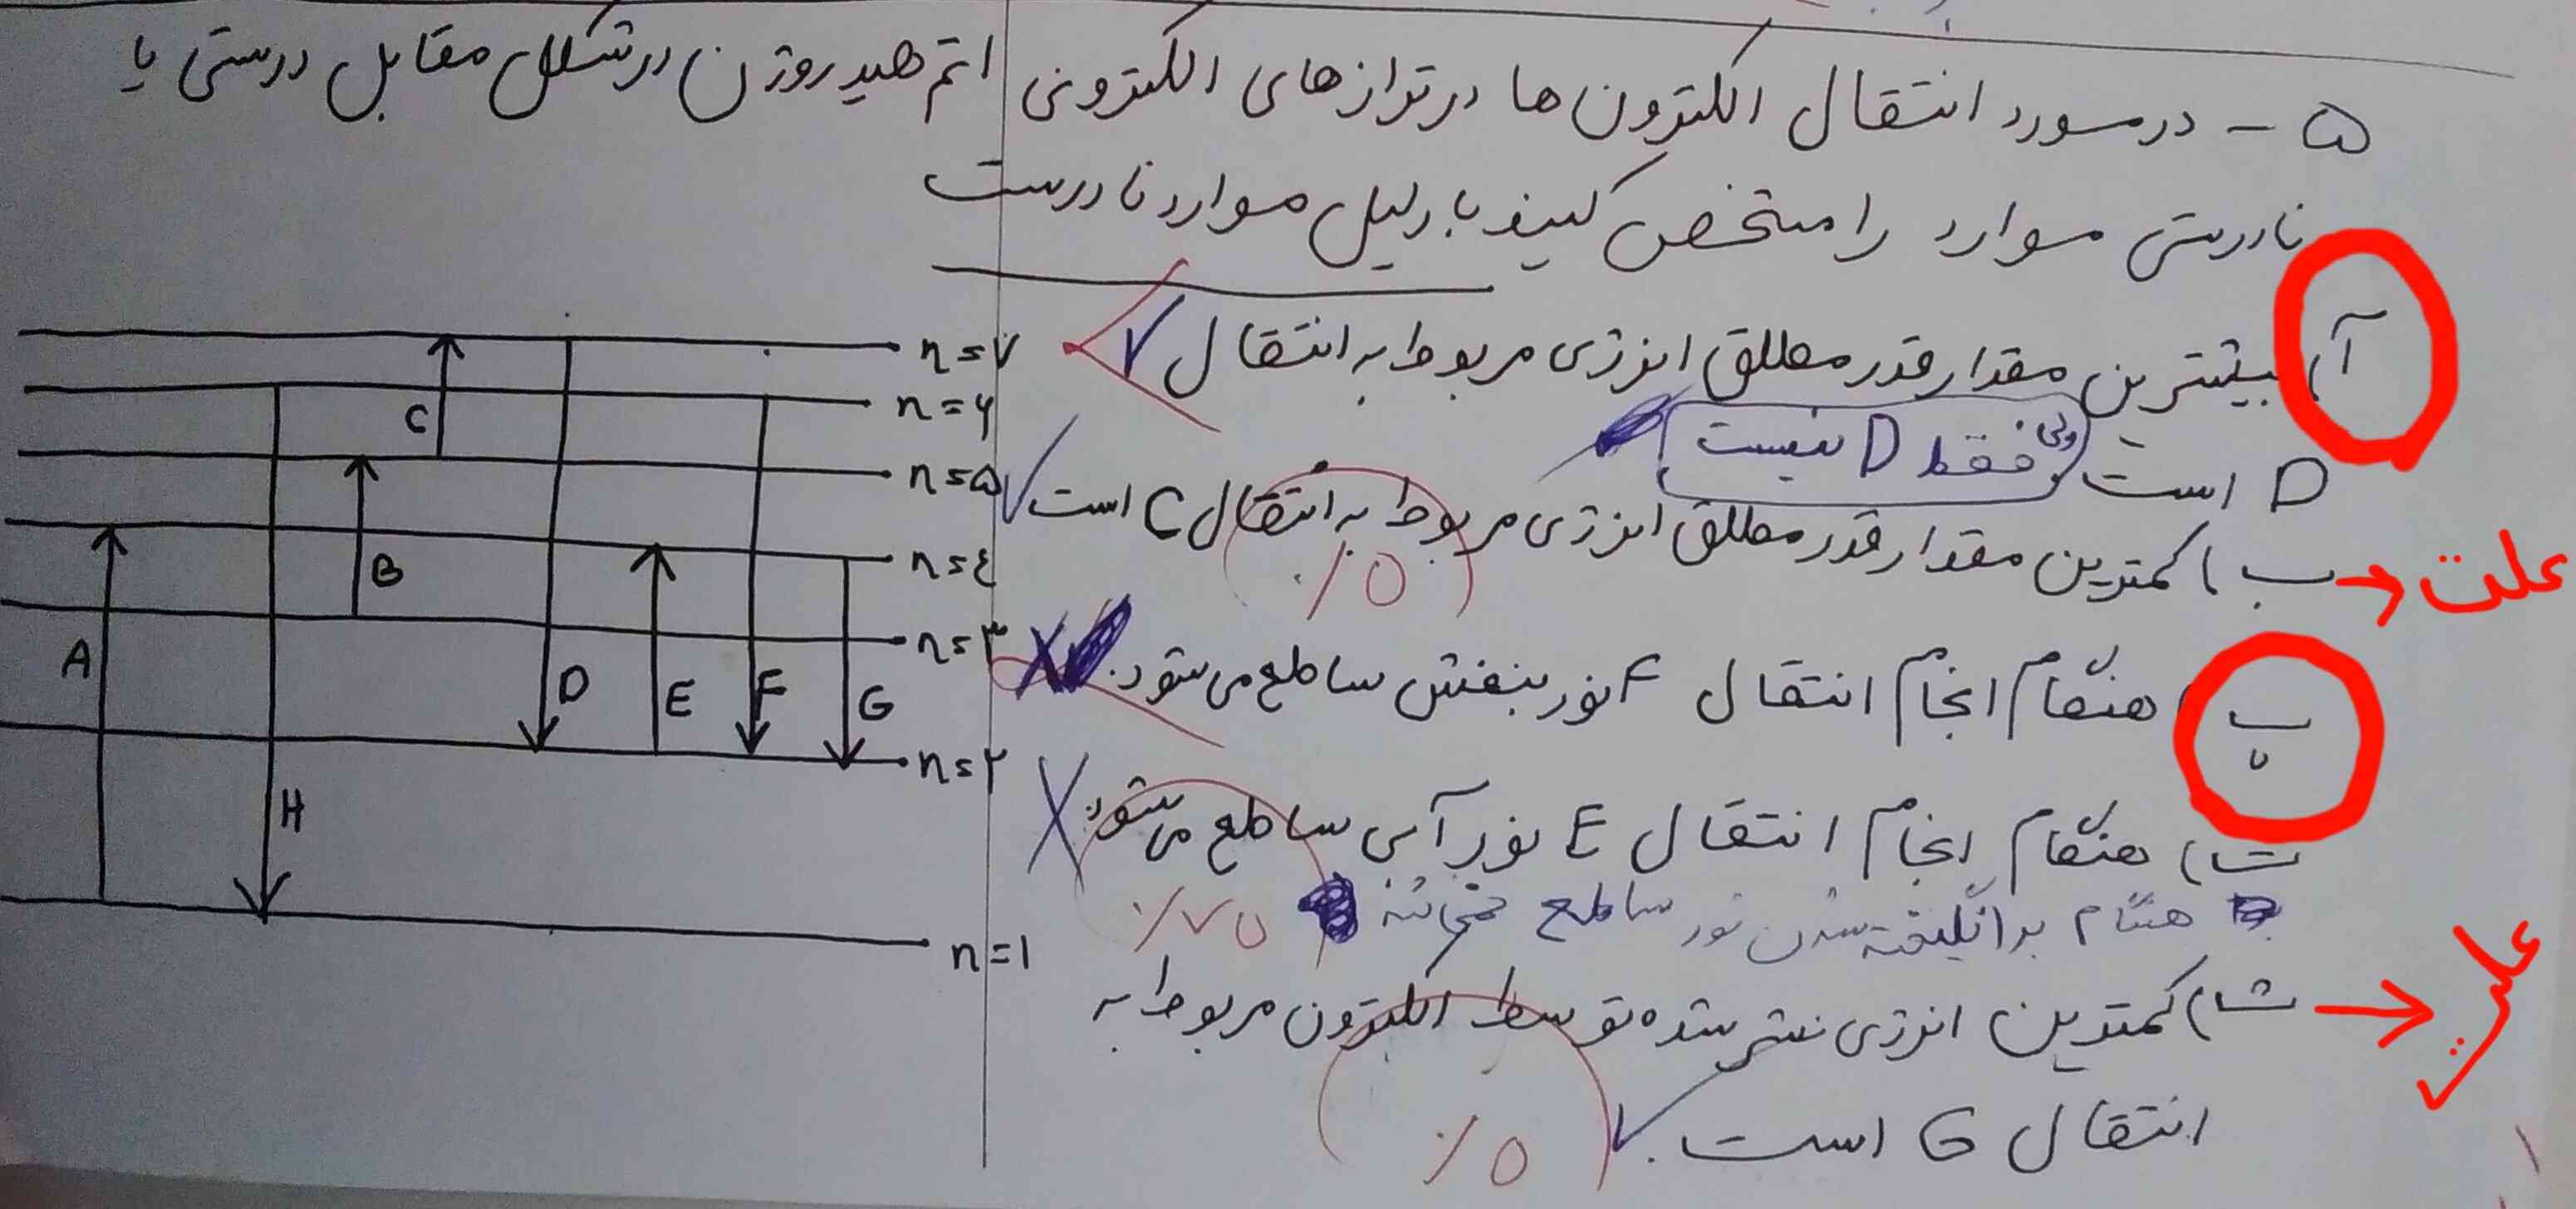 ۵ - در مورد انتقال الکترون ها در ترازهای الکترونی اتم هیدروژن در شکل مقابل درستی یا
نادرستی موارد را مشخص کنید با دلیل موارد نادرست
آ) بیشترین مقدار قدر مطلق انرژی مربوط به انتقال ✓
D است ولی فقط D نیست
ب) کمترین مقدار قدر مطلق انرژی مربوط به انتقال C است ✓
علت
۰/۵
پ) هنگام انجام انتقال F نور بنفش ساطع می شود. X
ت) هنگام انجام انتقال E نور آبی ساطع می شود. X
هنگام برانگیخته شدن نور ساطع نمی شه
۰/۷۵
ث) کمترین انرژی نشر شده توسط الکترون مربوط به
علت
انتقال G است. ✓
۰/۵
n=۷
n=۶
n=۵
n=٤
n=۳
n=۲
n=۱
A
B
C
D
E
F
G
H